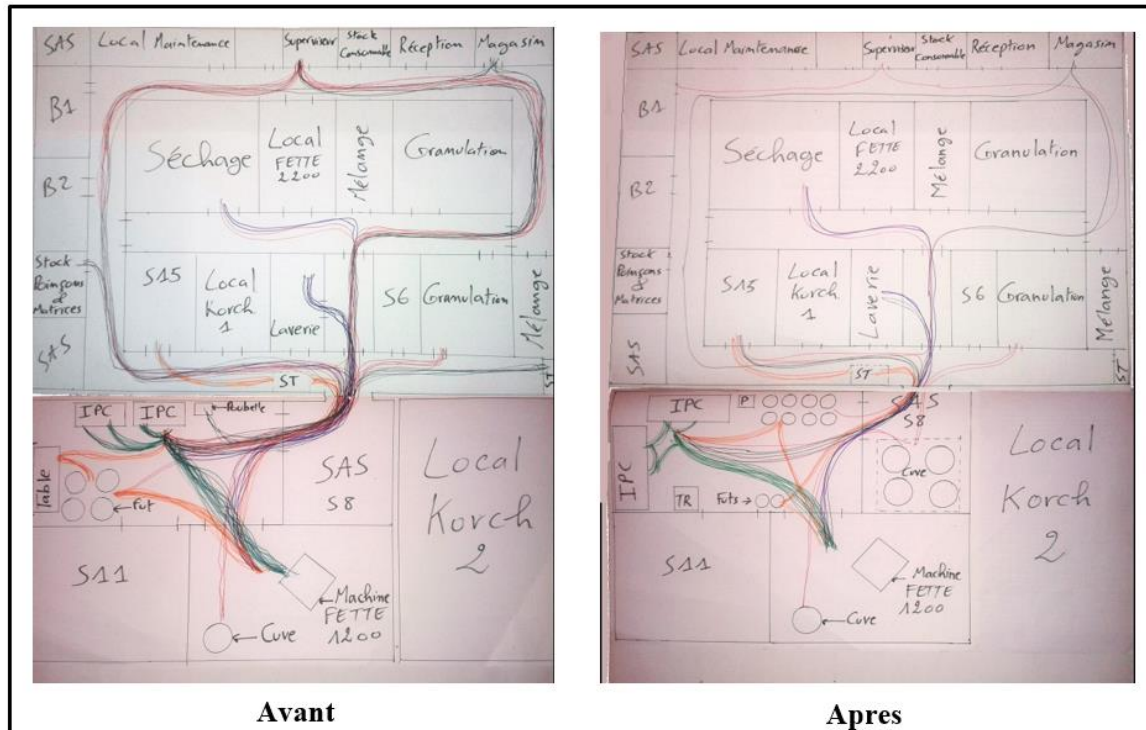 SAS
Local Maintenance
Superviseur
Stock
Consommable
Réception
Magasin
B1
B2
Séchage
Local
FETTE
2200
Mélange
Granulation
Stock
Poinçons
&
Matrices
SAS
S15
Local
Korch
1
Laverie
S6
Granulation
Mélange
ST
ST
IPC
IPC
Poubelle
Table
Fut
SAS
S8
Local
Korch
2
S11
Machine
FETTE
1200
Cuve
Avant
SAS
Local Maintenance
Superviseur
Stock
Consommable
Réception
Magasin
B1
B2
Séchage
Local
FETTE
2200
Mélange
Granulation
Stock
Poinçons
&
Matrices
SAS
S15
Local
Korch
1
Laverie
S6
Granulation
Mélange
ST
ST
IPC
P
SAS
S8
IPC
TR
Futs
Cuve
Local
Korch
2
S11
Machine
FETTE
1200
Cuve
Apres